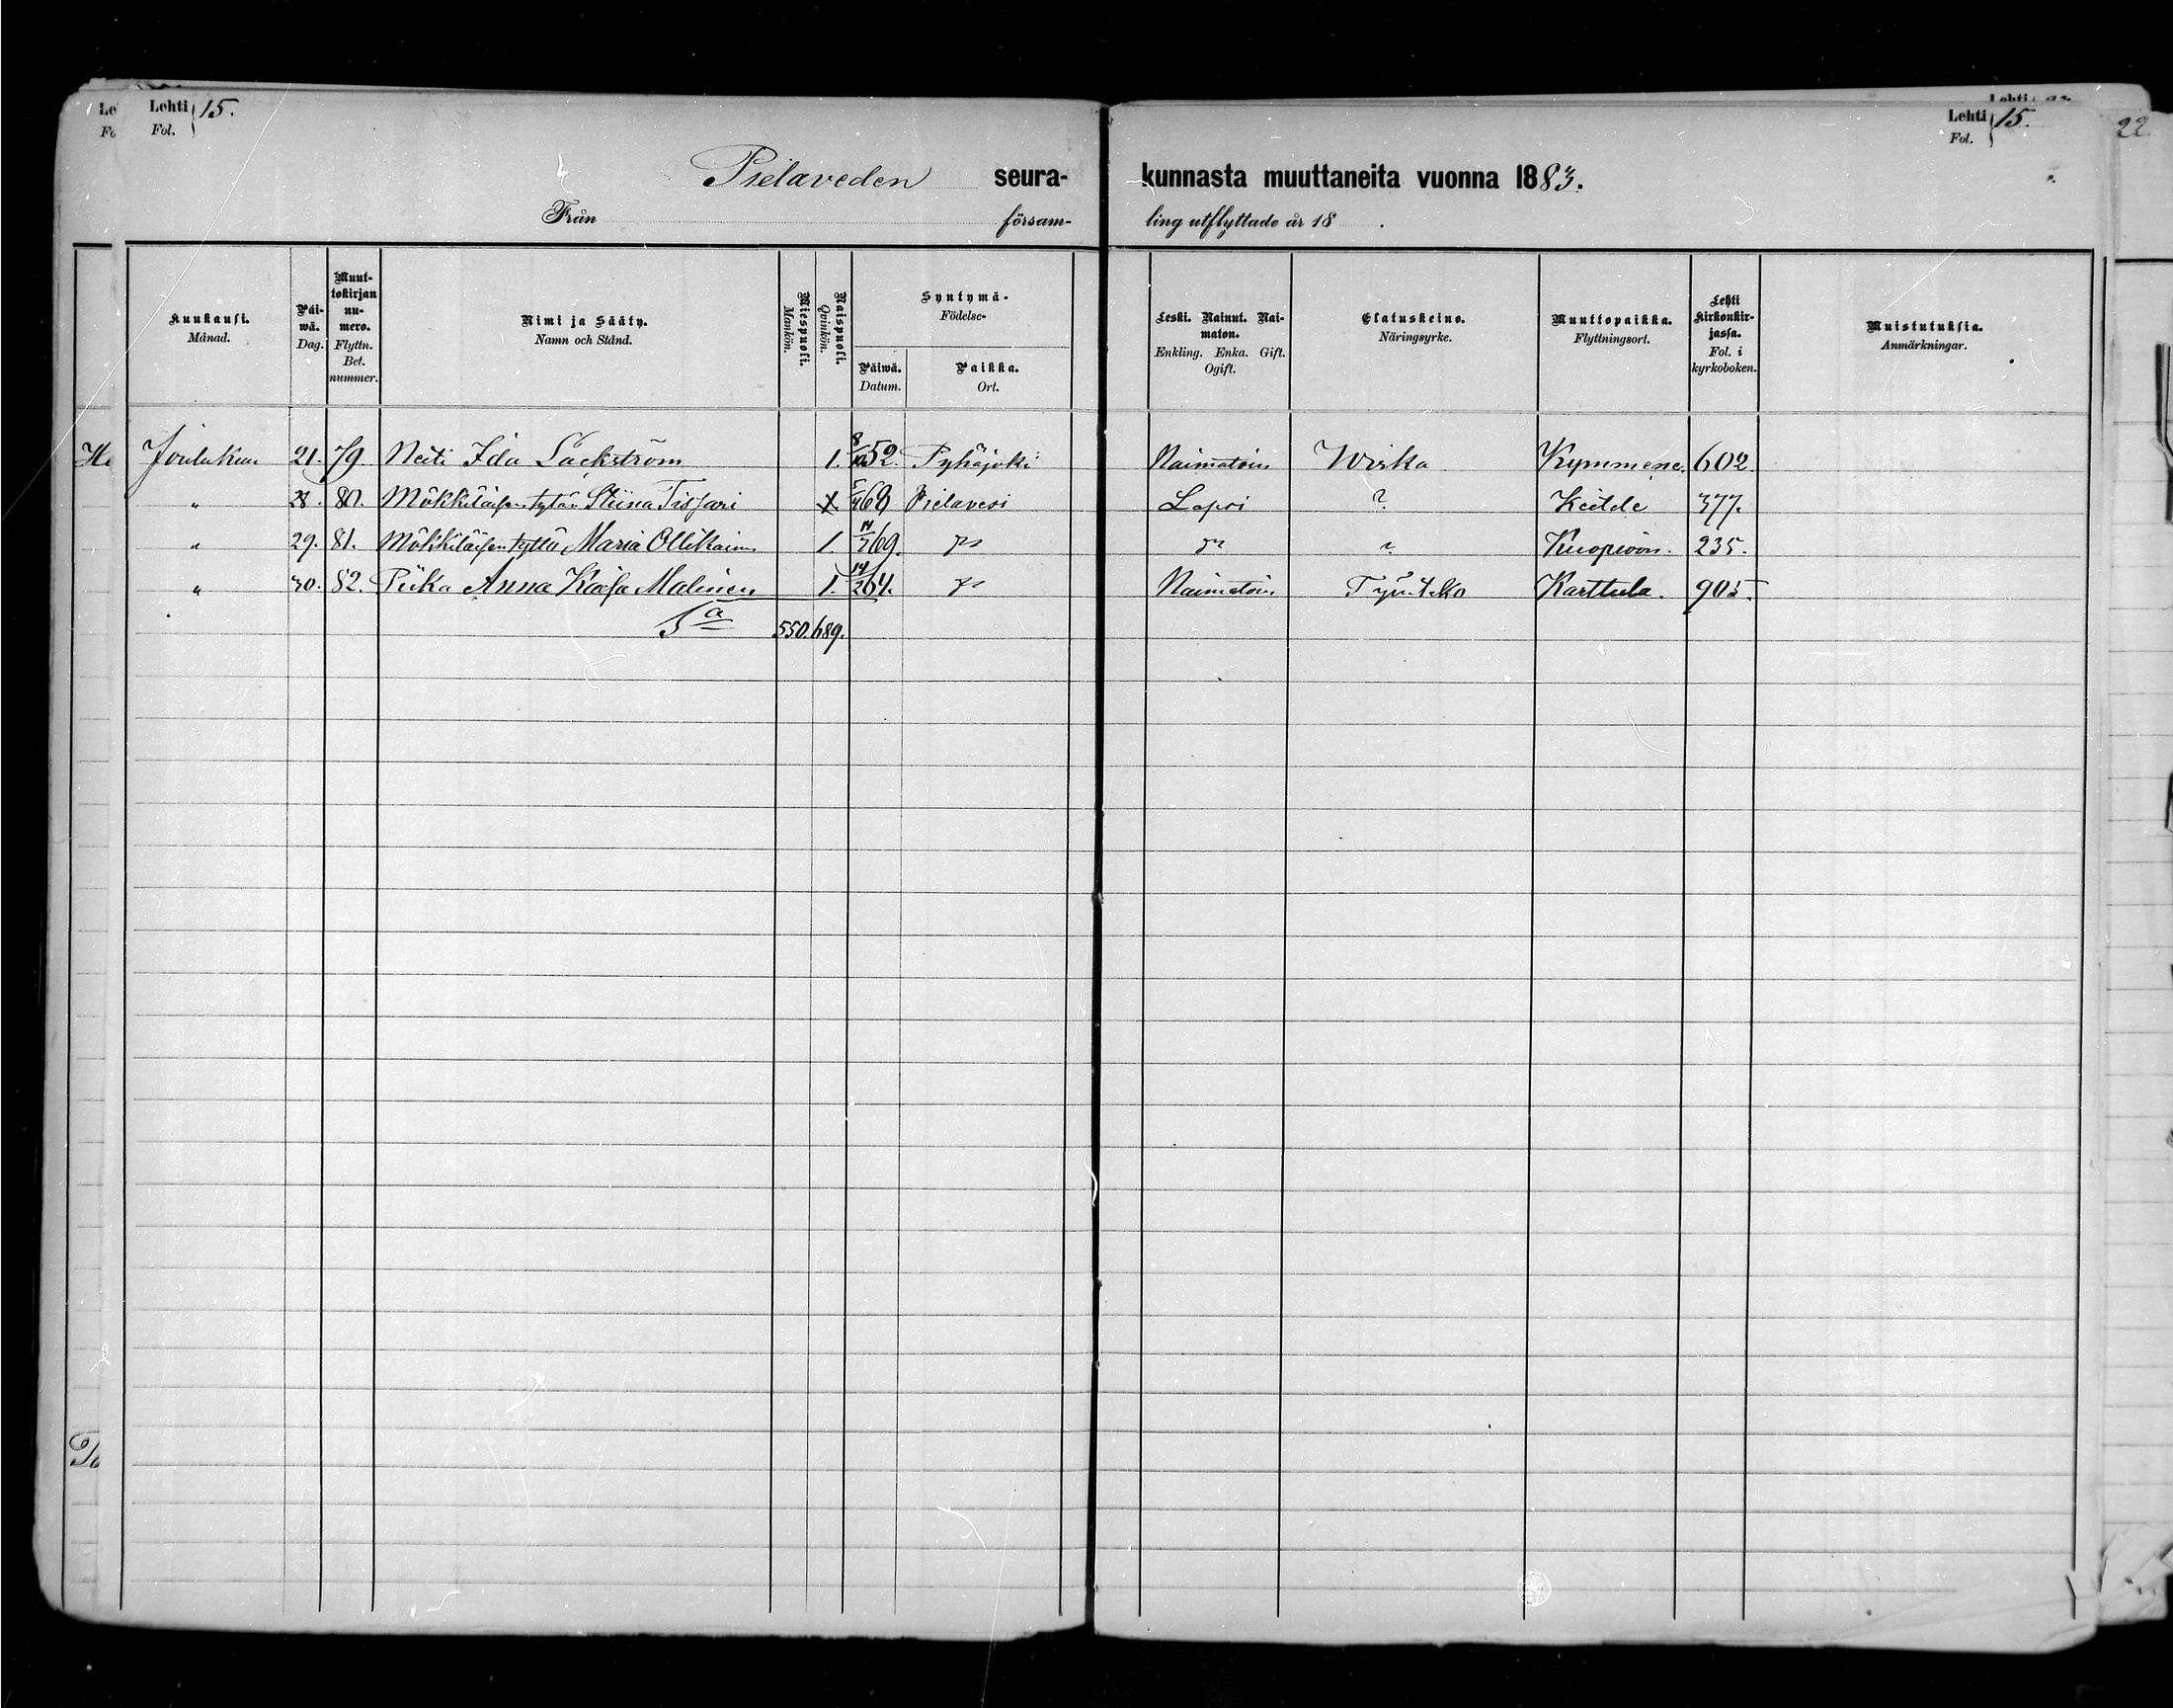 Lehti 15. Lehti 15.
Fol. Fol.
22
Pielaveden seura- kunnasta muuttaneita vuonna 1883.
Från församling utflyttade år 18 .
Kuukausi. Månad.
Päiwä. Dag.
Muuttokirjan numero. Flyttn. Bet. nummer.
Nimi ja Sääty. Namn och Stånd.
Miespuoli. Mankön.
Naispuoli. Qvinkön.
Syntymä- Födelse-
Päiwä. Datum.
Paikka. Ort.
Leski. Nainut. Naimaton. Enkling. Enka. Gift. Ogift.
Elatuskeino. Näringsyrke.
Muuttopaikka. Flyttningsort.
Lehti Kirkonkirjassa. Fol. i kyrkoboken.
Muistutuksia. Anmärkningar.
Joulukuu 21. 79 Neiti Ida Lackström 1. 8/10 52. Pyhäjoki Naimatoin Kymmene. 602.
" 28. 80. Mökkiläisen tytär Stiina Tissari 68 Pielavesi Lapsi ? Keitele 377.
" 29. 81. Mökkiläisen tyttö Maria Ollikain. 1. 69. ? Kuopioon. 235.
" 30. 82. Piika Anna Kaisa Malinen 1. 14/2 64. Naimatoin Karttula. 905.
Sa 550. 689.